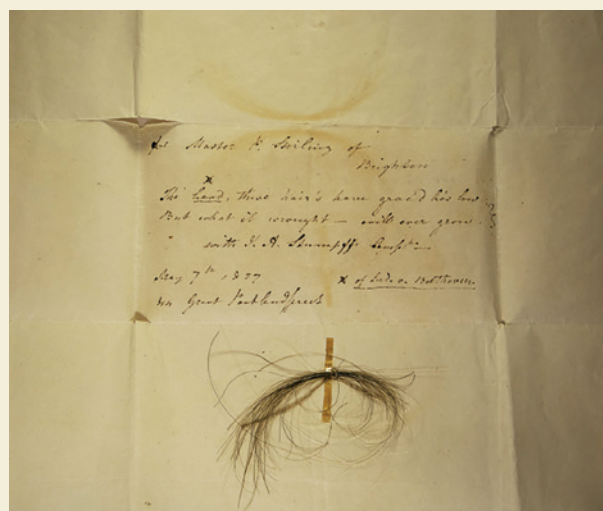 for Master P. Stirling of
Brighton
x
The head, these hair's have grac'd lies low
But what it wrought — will ever grow.
with J. A. Stumpff's
May 7th 1827
x of Lud. v. Beethoven.
Great Portland Street